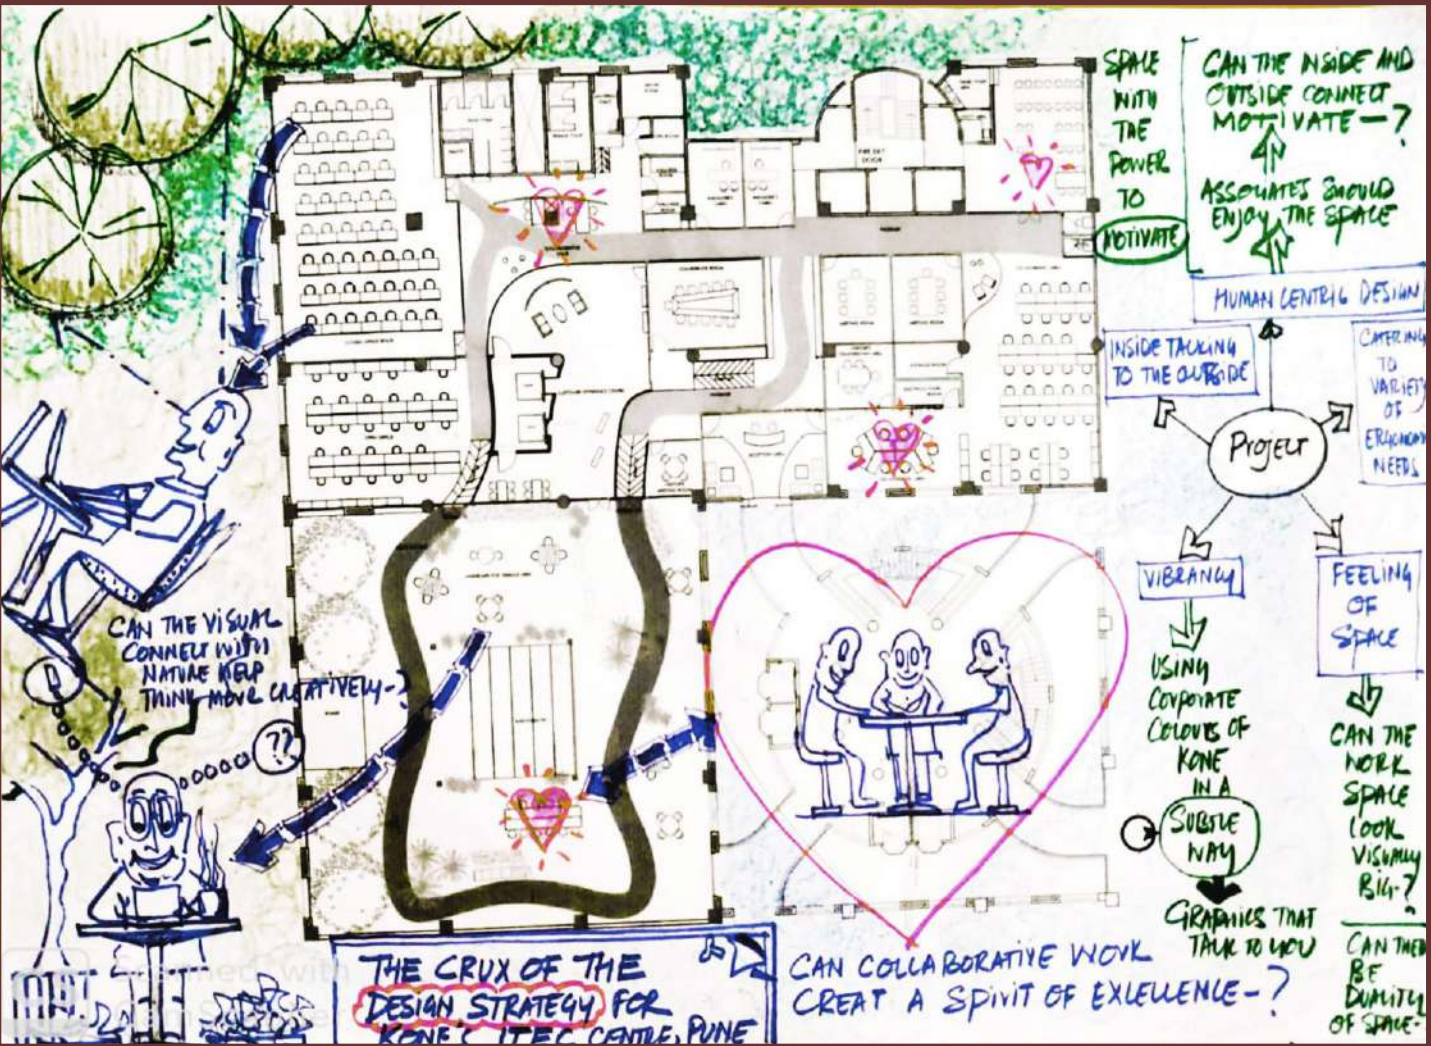 SPACE
WITH
THE
POWER
TO
MOTIVATE
CAN THE INSIDE AND
OUTSIDE CONNECT
MOTIVATE – ?
ASSOCIATES SHOULD
ENJOY THE SPACE
HUMAN CENTRIC DESIGN
INSIDE TALKING
TO THE OUTSIDE
CATERING
TO
VARIETY
OF
ERGONOM
NEEDS
PROJECT
VIBRANCY
FEELING
OF
SPACE
USING
CORPORATE
COLOURS OF
KONE
IN A
SUBTLE
WAY
GRAPHICS THAT
TALK TO YOU
CAN THE
WORK
SPACE
LOOK
VISUALLY
BIG - ?
CAN THEIR
BE
DUALITY
OF SPACE -
CAN THE VISUAL
CONNECT WITH
NATURE HELP
THINK MORE CREATIVELY - ?
??
THE CRUX OF THE
DESIGN STRATEGY FOR
KONE'S ITEC CENTRE, PUNE
CAN COLLABORATIVE WORK
CREAT A SPIRIT OF EXCELLENCE - ?
FIRE EXIT
DOOR
MEETING ROOM
MEETING ROOM
Scanned with
CamScanner